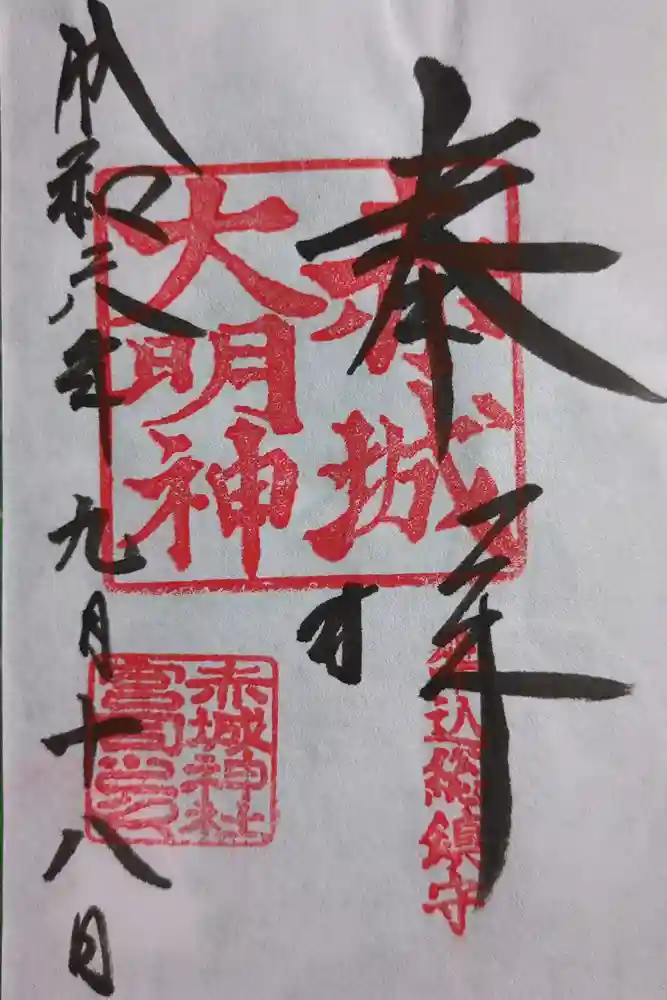 奉拝
赤城
大明神
牛込総鎮守
赤城神社
宮司
和
年九月十八日